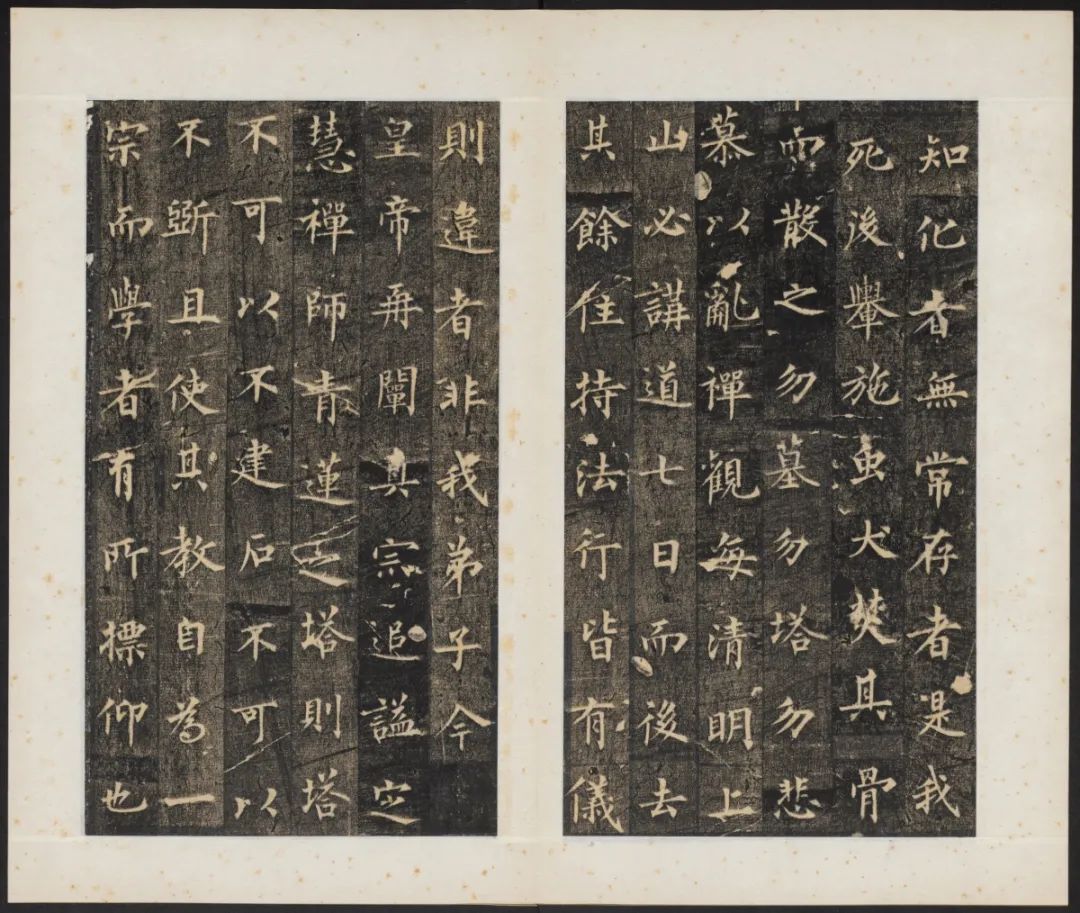 知化者無常存者是我
死後轝施虫犬焚其骨
而散之勿墓勿塔勿悲
慕以亂禪觀每清明上
山必講道七日而後去
其餘住持法行皆有儀
則違者非我弟子今
皇帝再闡真宗追謚定
慧禪師青蓮之塔則塔
不可以不建石不可以
不斲且使其教自為一
宗而學者有所標仰也